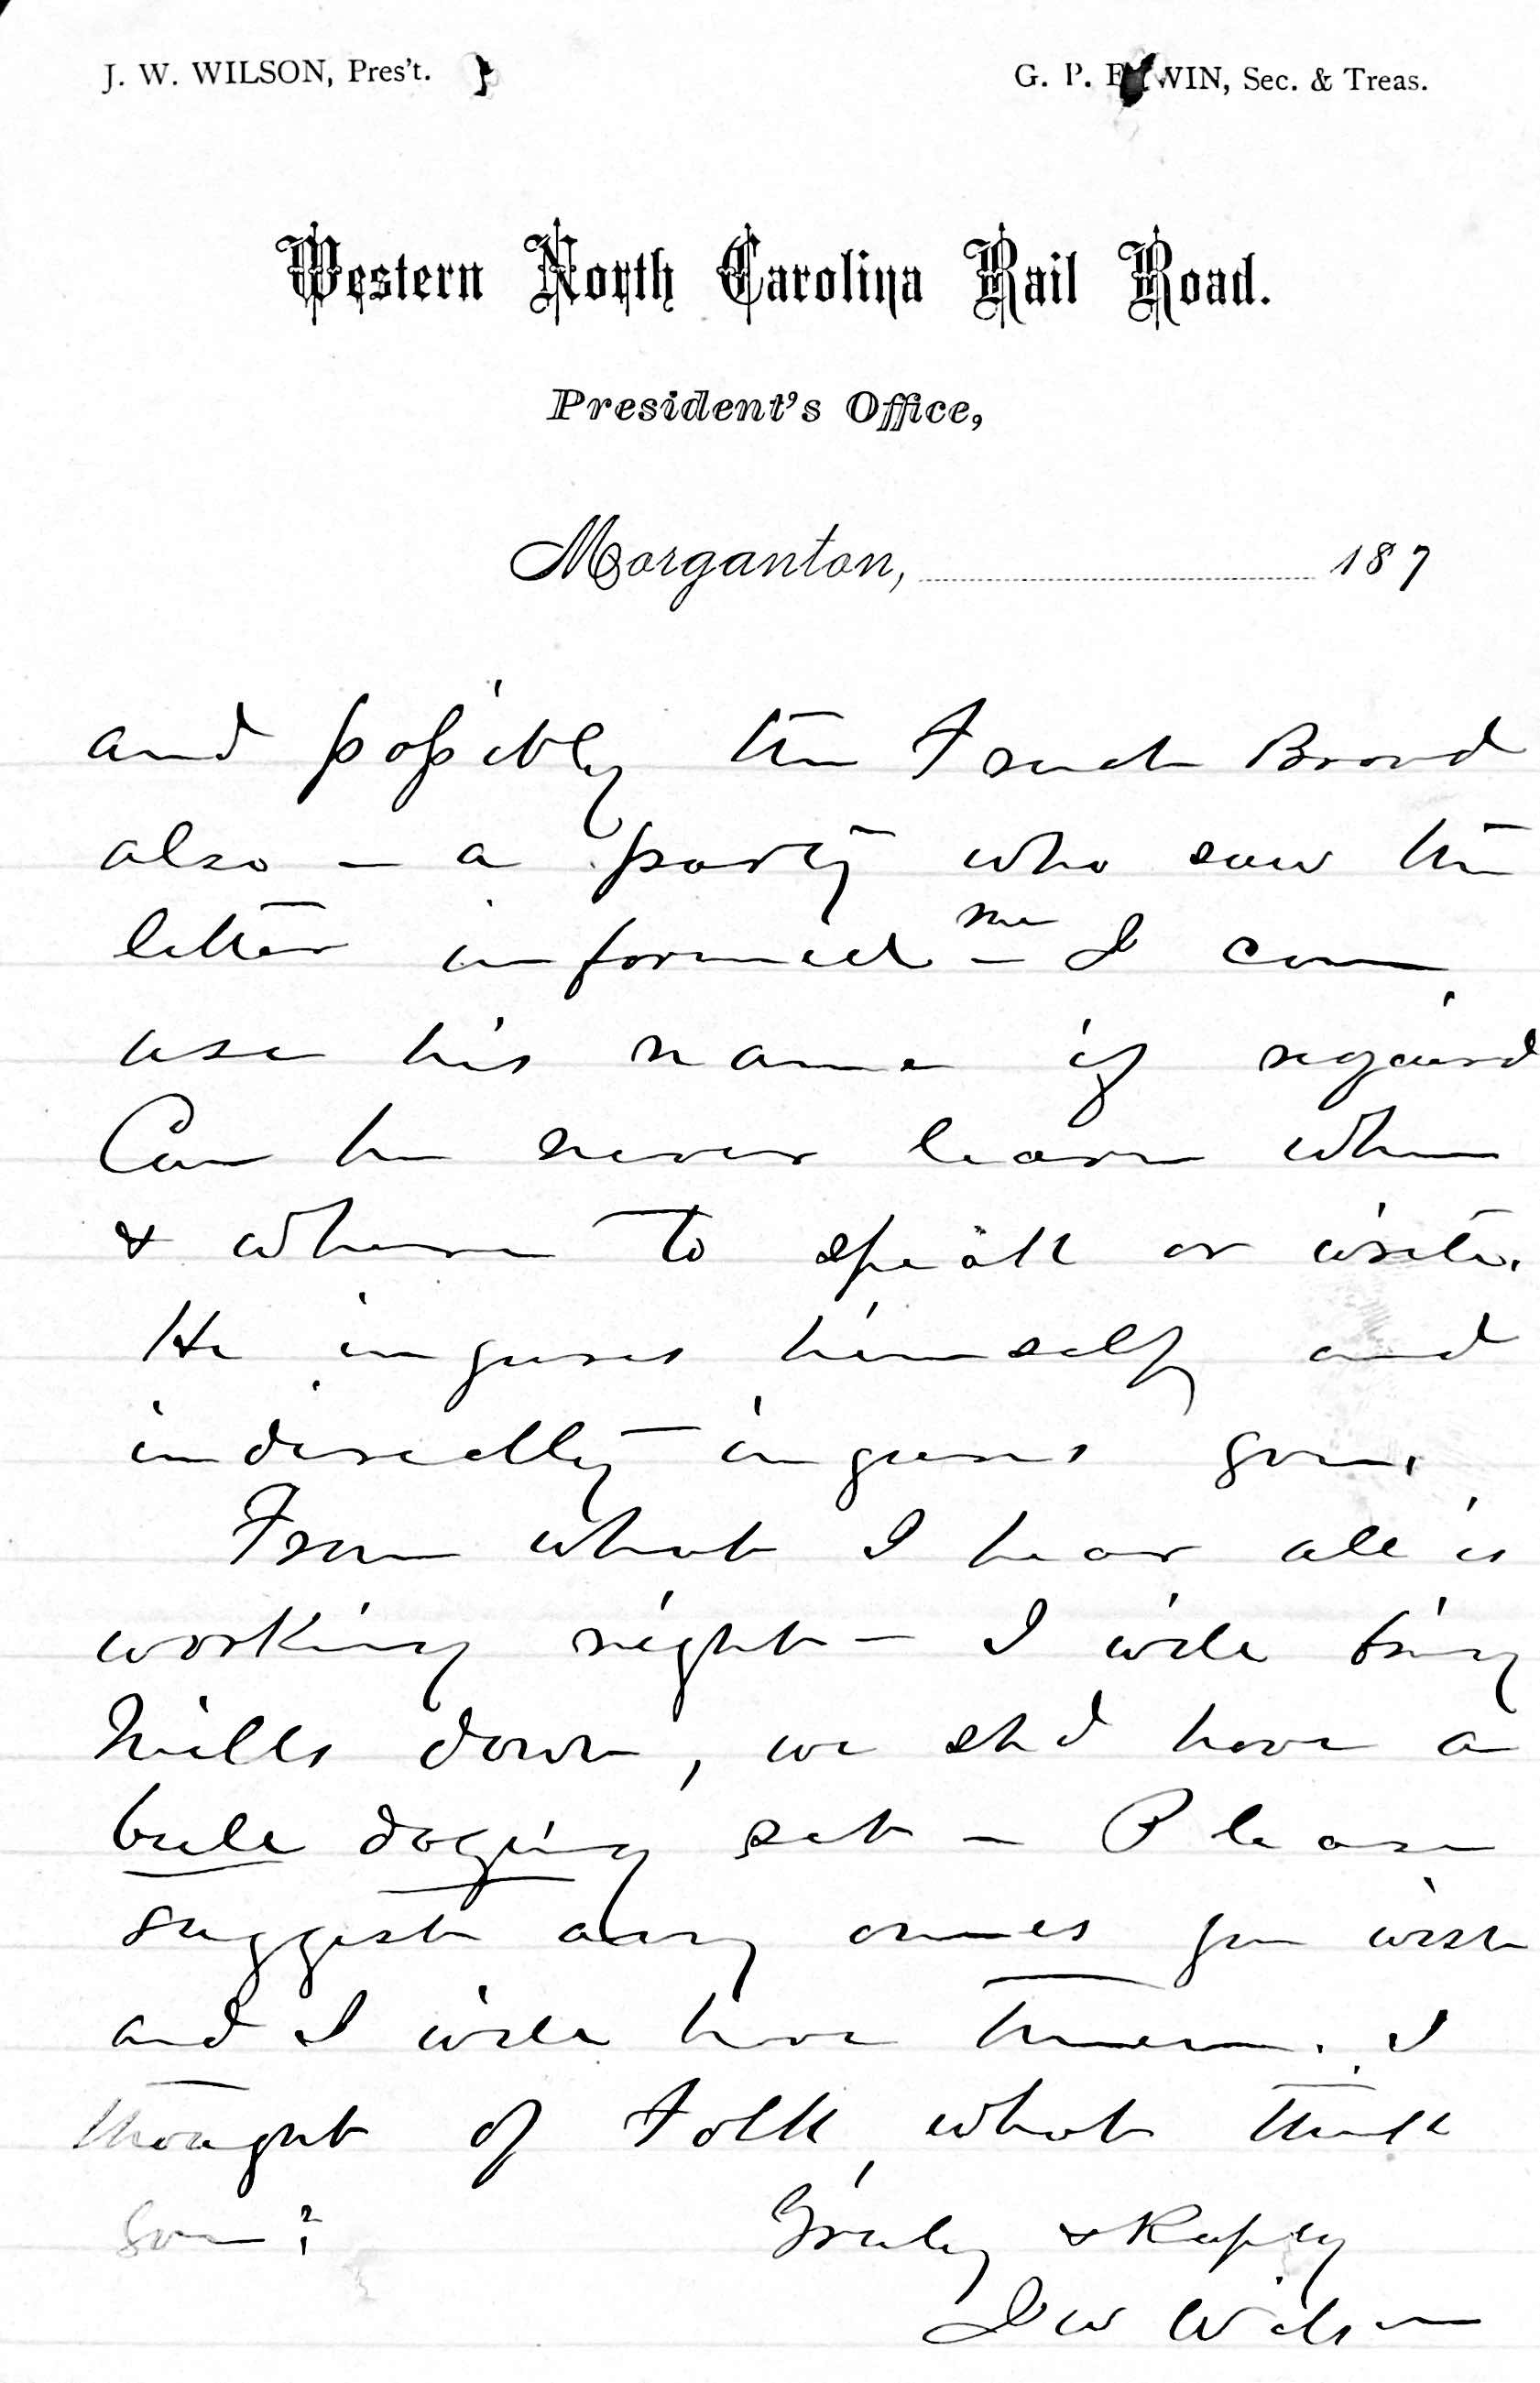 J. W. WILSON, Pres't.
G. P. ERWIN, Sec. & Treas.
Western North Carolina Rail Road.
President's Office,
Morganton, 187
and possibly the French Broad
also – a party who saw the
letter informed me – I can
use his name if required
Can he never learn when
& where to speak or write.
He injures himself and
indirectly injures you.
From what I hear all is
working right – I will bring
Mills down, we shd have a
bull doging set – Please
suggest any names you wish
and I will have them. I
thought of Folk, what think
you?
Truly & Respy
J W Wilson